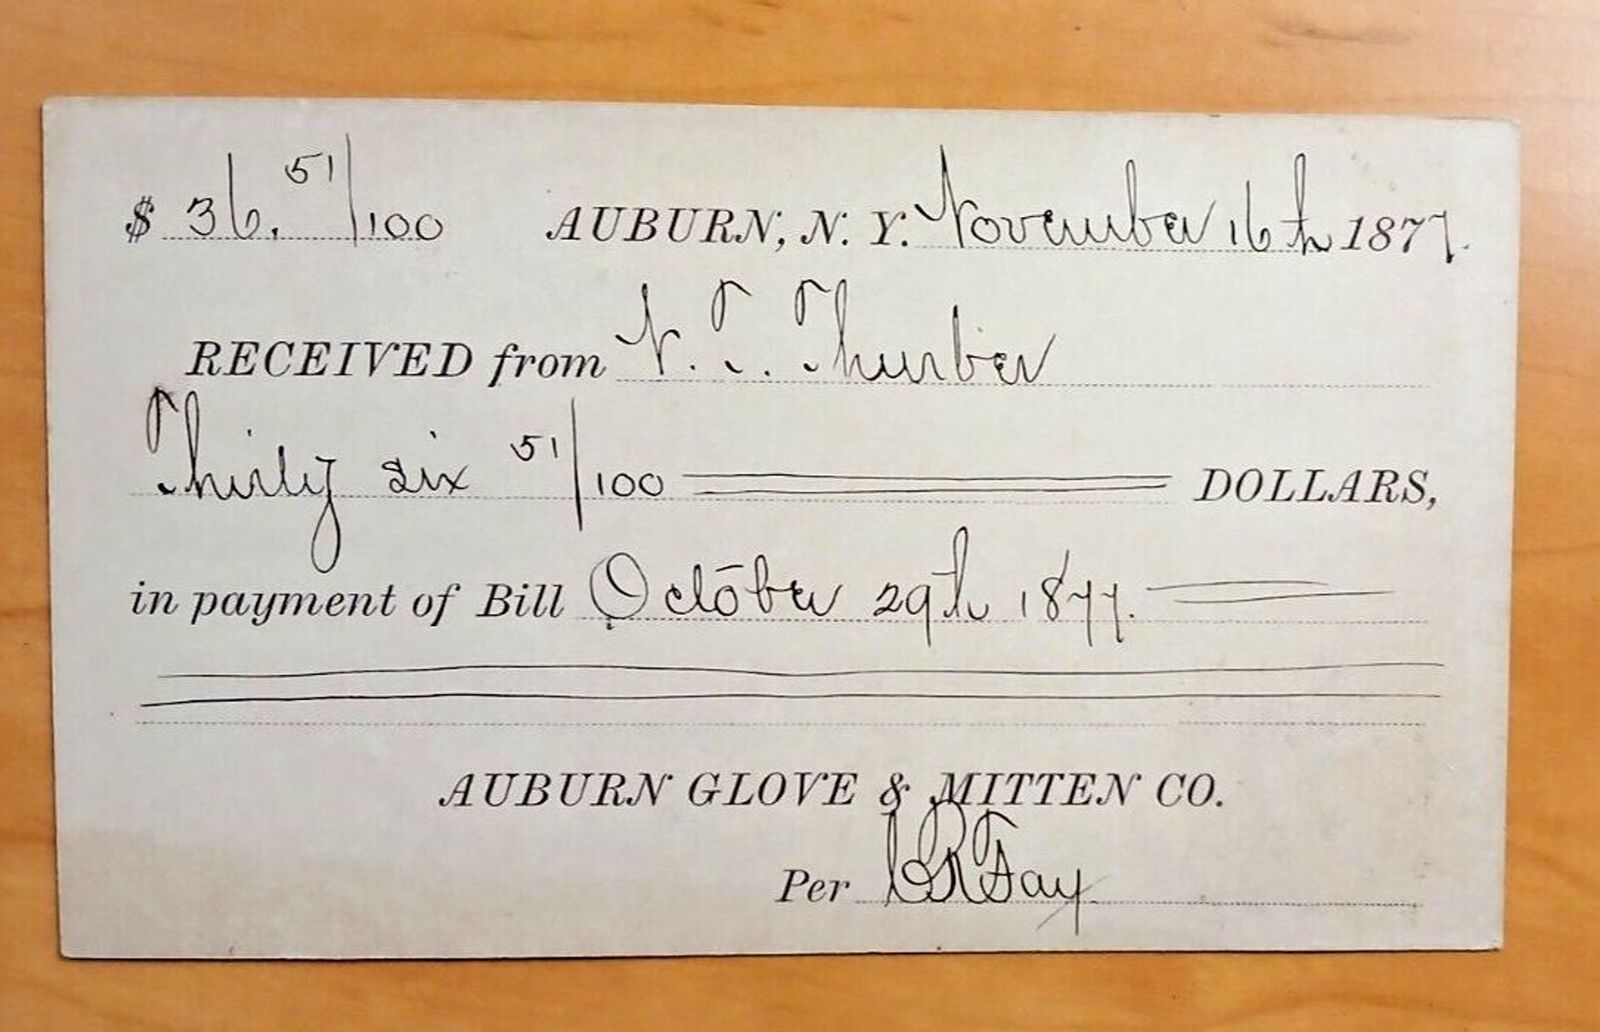 $ 36. 51/100 AUBURN, N. Y. November 16th 1877.
RECEIVED from N. T. Thurber
Thirty six 51/100 DOLLARS,
in payment of Bill October 29th 1877.
AUBURN GLOVE & MITTEN CO.
Per Fay